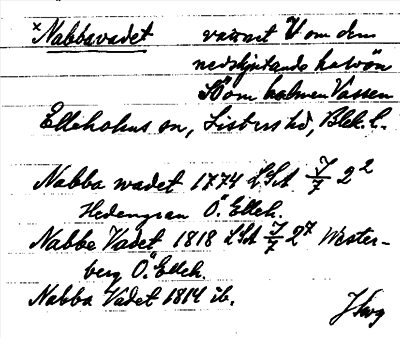 ×Nabbavadet vattnet V om den
nedskjutande halvön
SO om holmen Vassen
Ellehohus sn, Listers hd, Blek. l.
Nabba wadet 1774 LSA J/7 2²
Hedengran Ö. Elleh.
Nabba Vadet 1818 LSA J/7 2⁷ Wester-
berg Ö. Elleh.
Nabba Vadet 1814 ib.